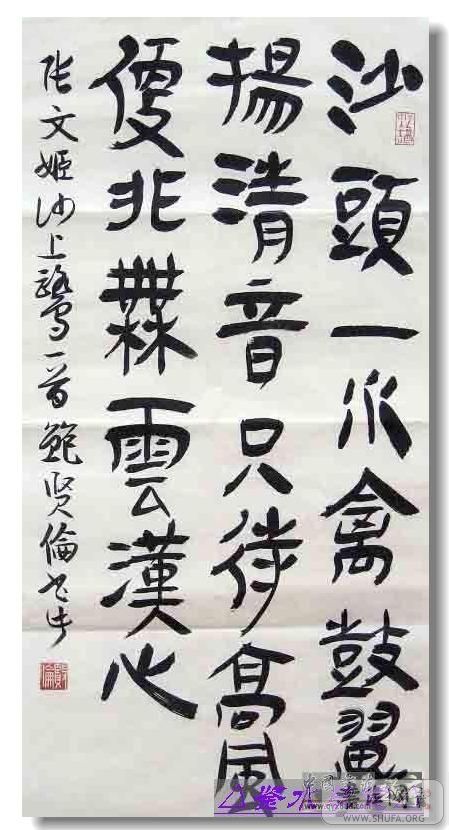 沙頭一水禽鼓翼
揚清音只待高風
便非無雲漢心
張文姬沙上鷺一首鮑賢倫書
WWW.SHUFA.ORG